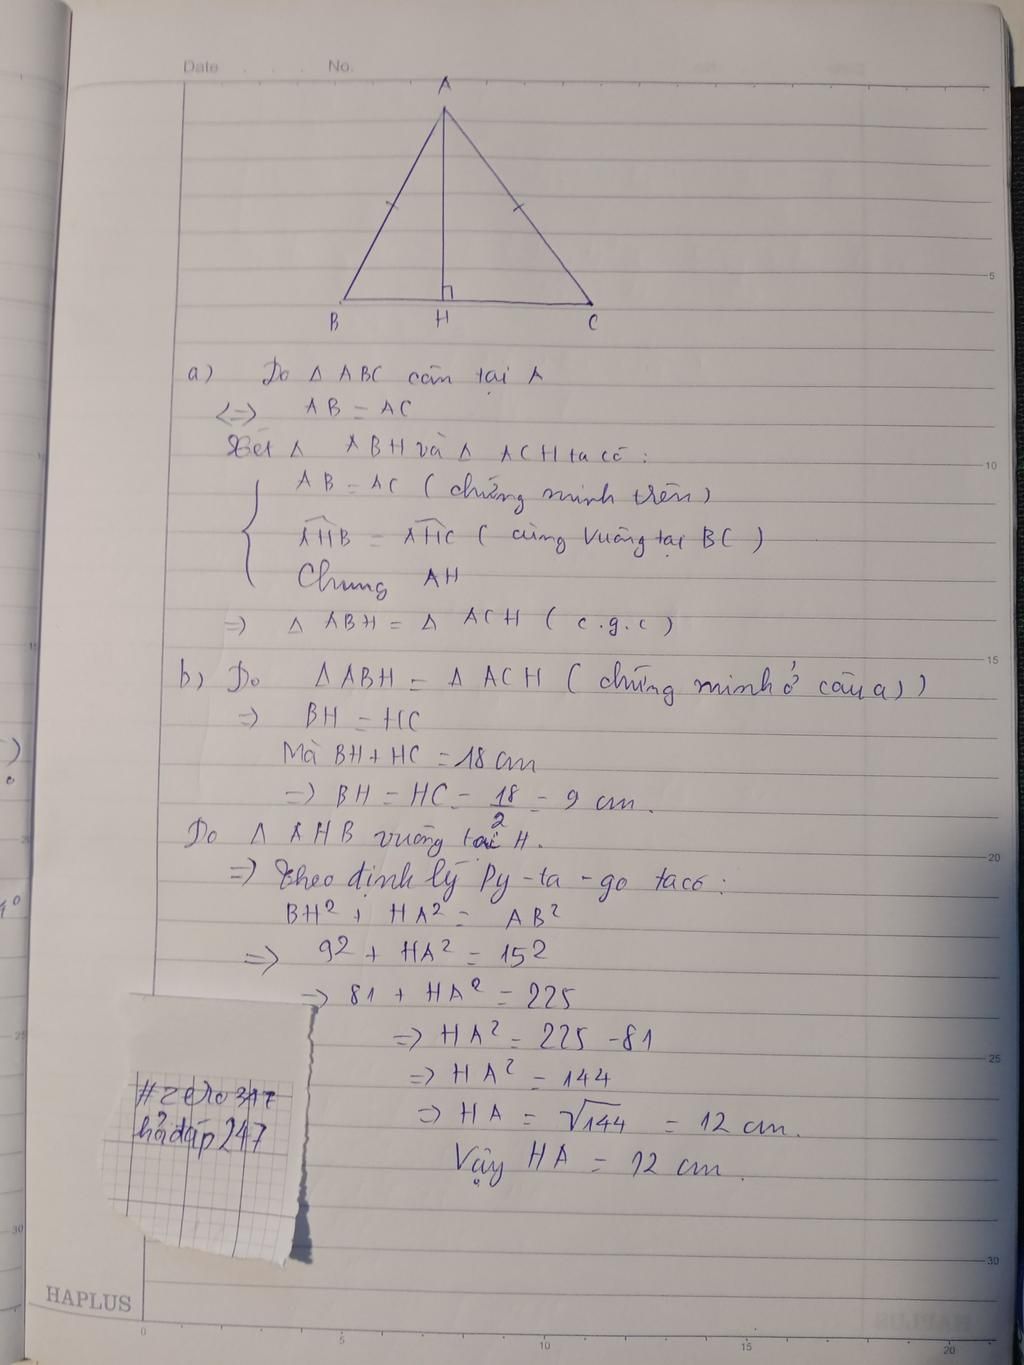 Date No.
A
B H C
a) Do Δ ABC cân tại A
<=> AB = AC
Xét Δ ABH và Δ ACH ta có:
AB = AC (chứng minh trên)
AHB = AHC (cùng vuông tại BC)
Chung AH
=> Δ ABH = Δ ACH (c.g.c)
b) Do Δ ABH = Δ ACH (chứng minh ở câu a))
=> BH = HC
Mà BH + HC = 18 cm
=> BH = HC = 18/2 = 9 cm.
Do Δ AHB vuông tại H.
=> Theo định lý Py-ta-go ta có:
BH² + HA² = AB²
=> 9² + HA² = 15²
=> 81 + HA² = 225
=> HA² = 225 - 81
=> HA² = 144
=> HA = √144 = 12 cm.
Vậy HA = 12 cm.
#zero347
hỏi đáp 247
HAPLUS
5
10
15
20
25
30
0 5 10 15 20